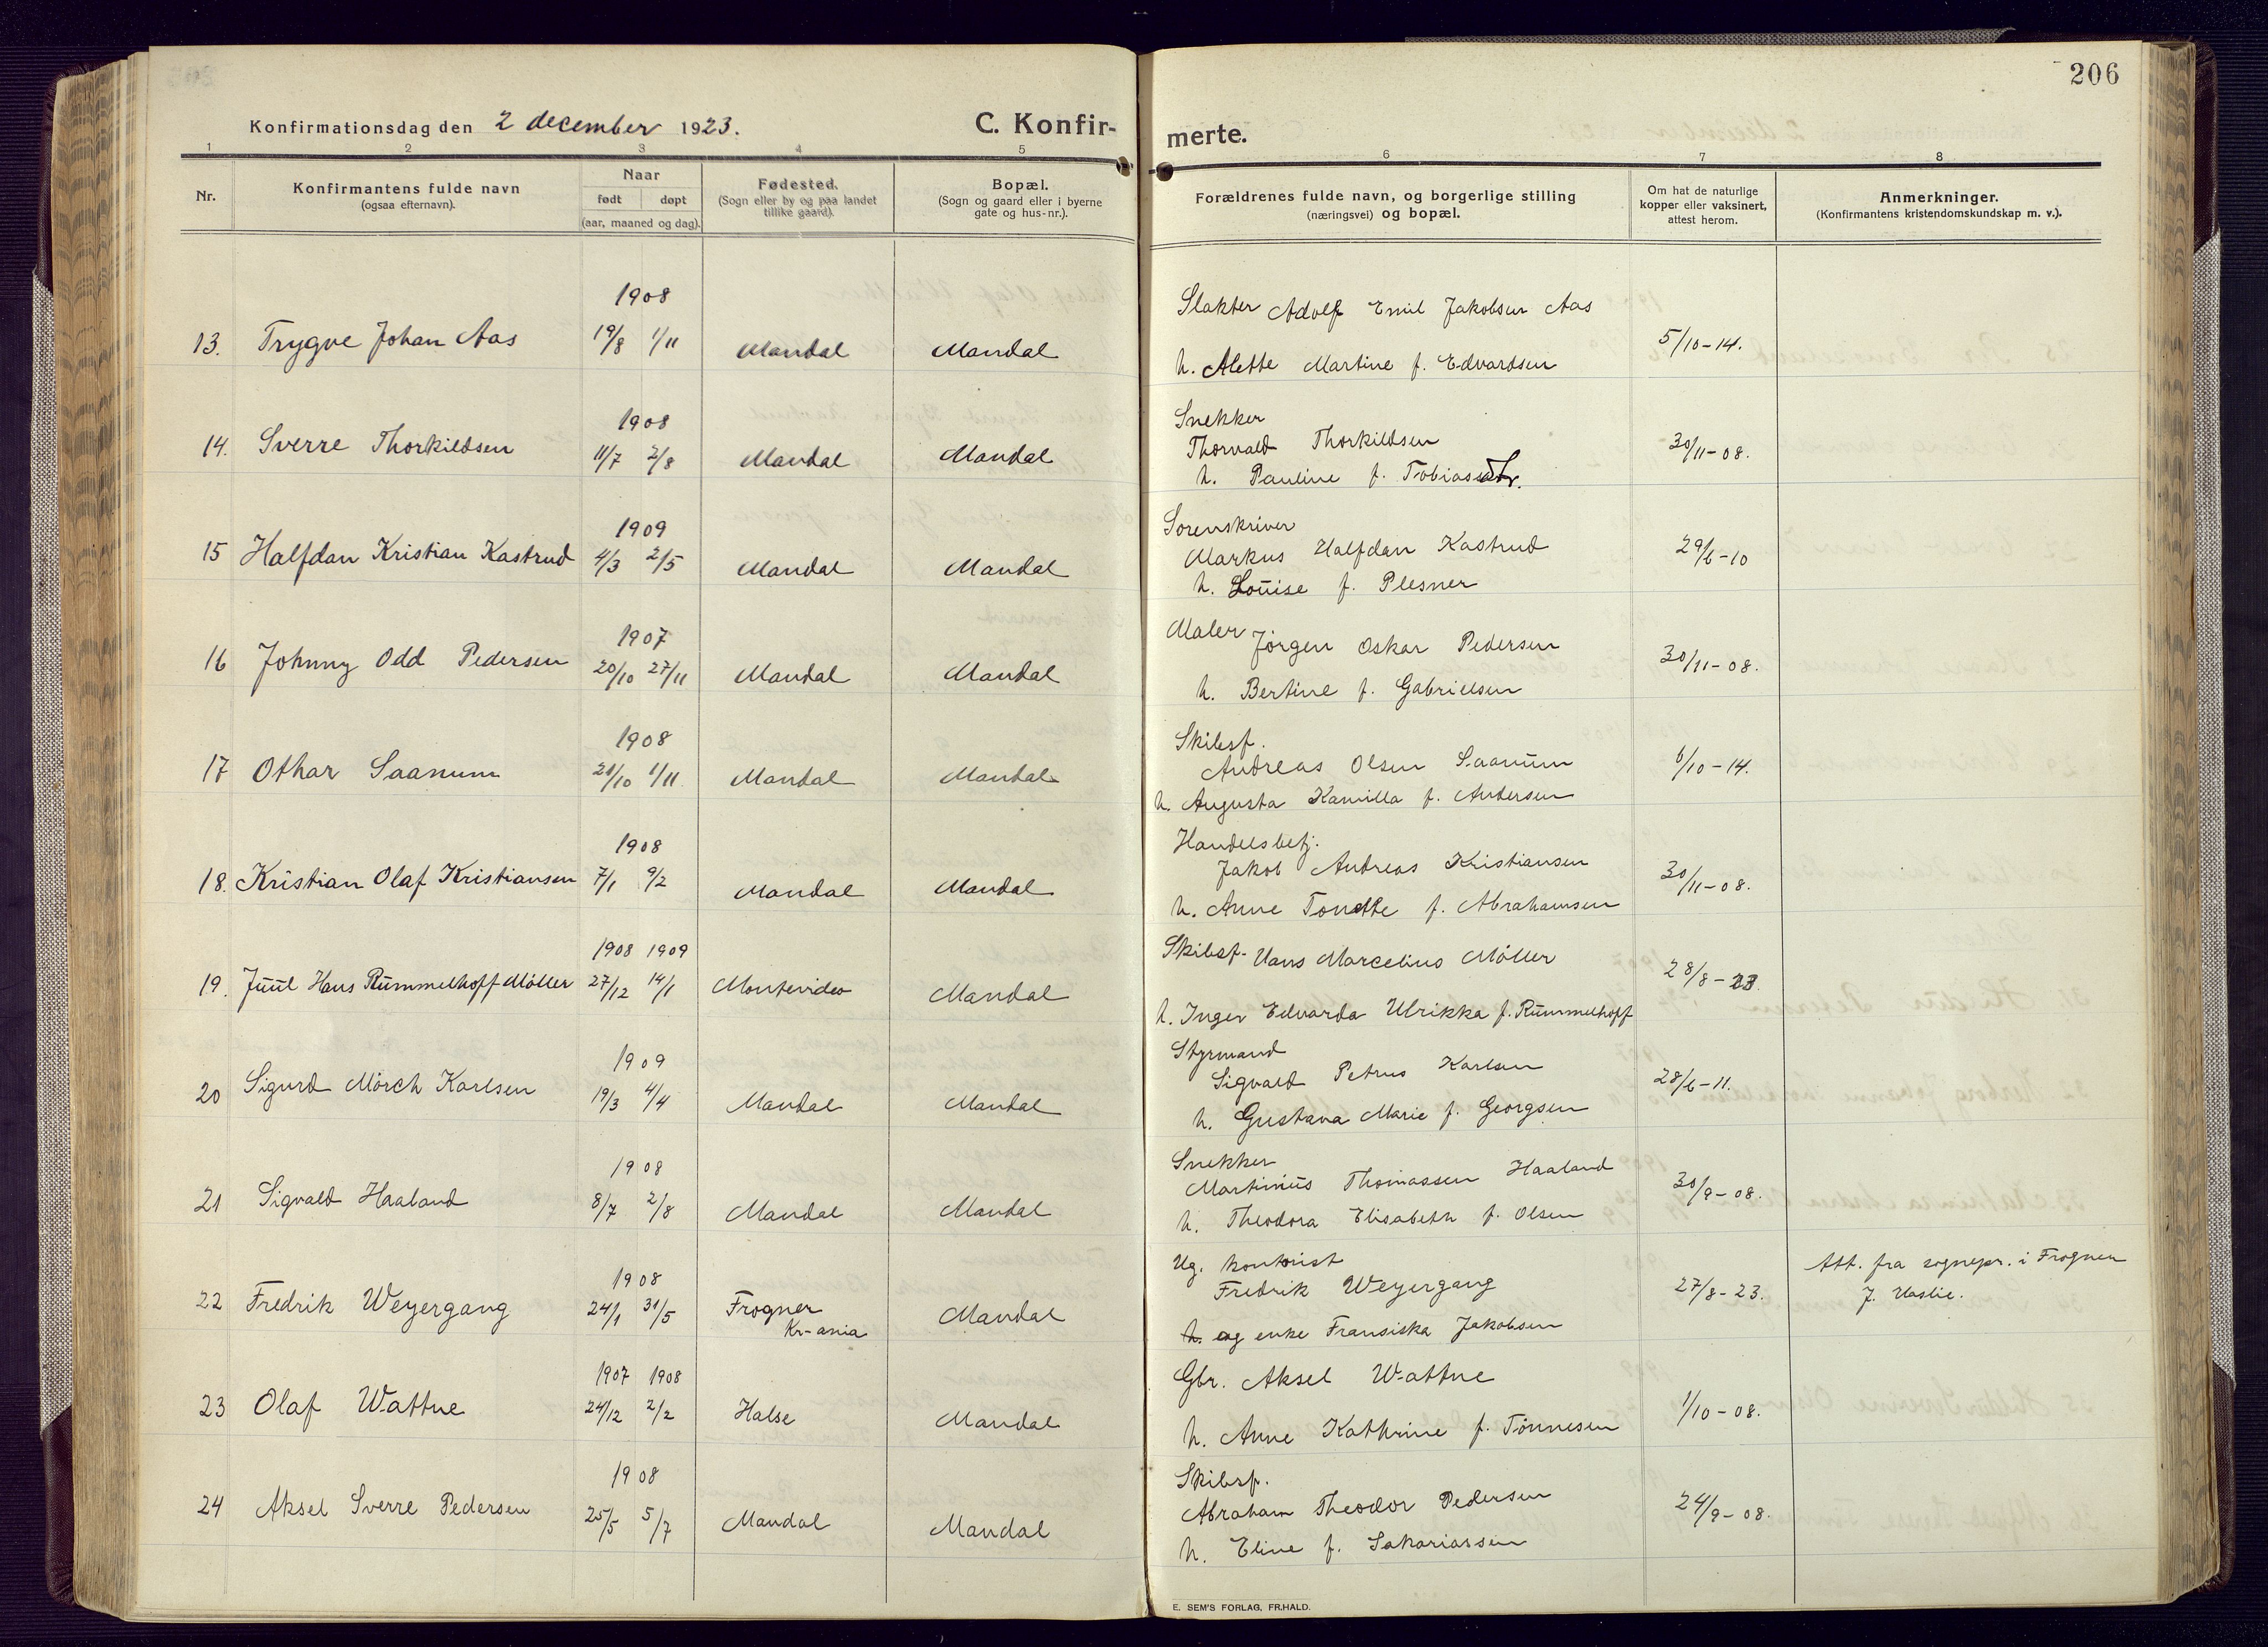 206
Konfirmationsdag den 2 december 1923.
C. Konfir-
merte.
1 2 3 4 5 6 7 8
Nr.
Konfirmantens fulde navn
(ogsaa efternavn).
Naar
født døpt
(aar, maaned og dag).
Fødested.
(Sogn eller by og paa landet
tillike gaard).
Bopæl.
(Sogn og gaard eller i byerne
gate og hus-nr.).
Forældrenes fulde navn, og borgerlige stilling
(næringsvei) og bopæl.
Om hat de naturlige
kopper eller vaksinert,
attest herom.
Anmerkninger.
(Konfirmantens kristendomskundskap m. v.).
1908
13. Trygve Johan Aas 19/8 1/11 Mandal Mandal
Slakter Adolf Emil Jakobsen Aas
h. Alette Martine f. Edvardsen
5/10-14.
1908
14. Sverre Thorkildsen 11/7 2/8 Mandal Mandal
Snekker
Thorvald Thorkildsen
h. Pauline f. Tobiasdtr.
30/11-08.
1909
15 Halfdan Kristian Kastrud 4/3 2/5 Mandal Mandal
Sorenskriver
Markus Halfdan Kastrud
h. Louise f. Plesner
29/6-10
1907
16 Johnny Odd Pedersen 20/10 27/11 Mandal Mandal
Maler Jørgen Oskar Pedersen
h. Bertine f. Gabrielsen
30/11-08.
1908
17 Othar Saanum 21/10 1/11 Mandal Mandal
Skibsf.
Andreas Olsen Saanum
h. Augusta Kamilla f. Andersen
6/10-14.
1908
18. Kristian Olaf Kristiansen 7/1 9/2 Mandal Mandal
Handelsbetj.
Jakob Andreas Kristiansen
h. Anne Tonette f. Abrahamsen
30/11-08.
1908 1909
19. Juul Hans Rummelhoff Møller 27/12 14/1 Montevideo Mandal
Skibsf. Hans Marcelius Møller
h. Inger Edvarda Ulrikka f. Rummelhoff
28/8-23.
1909
20 Sigurd Mørch Karlsen 19/3 4/4 Mandal Mandal
Styrmand
Sigvald Petrus Karlsen
h. Gustava Marie f. Georgsen
28/6-11.
1908
21 Sigvald Haaland 8/7 2/8 Mandal Mandal
Snekker
Martinius Thomassen Haaland
h. Theodora Elisabeth f. Olsen
30/9-08.
1908
22 Fredrik Weyergang 24/1 31/5 Frogner
Kr-ania
Mandal
Ug. kontorist
Fredrik Weyergang
h. og enke Fransiska Jakobsen
27/8-23.
Att. fra sognepr. i Frogner
J. Haslie.
1907 1908
23 Olaf Wattne 24/12 2/2 Halse Mandal
Gbr. Aksel Wattne
h. Anne Kathrine f. Tønnesen
1/10-08.
1908
24 Aksel Sverre Pedersen 25/5 5/7 Mandal Mandal
Skibsf.
Abraham Theodor Pedersen
h. Eline f. Sakariassen
24/9-08.
E. SEM'S FORLAG, FR.HALD.